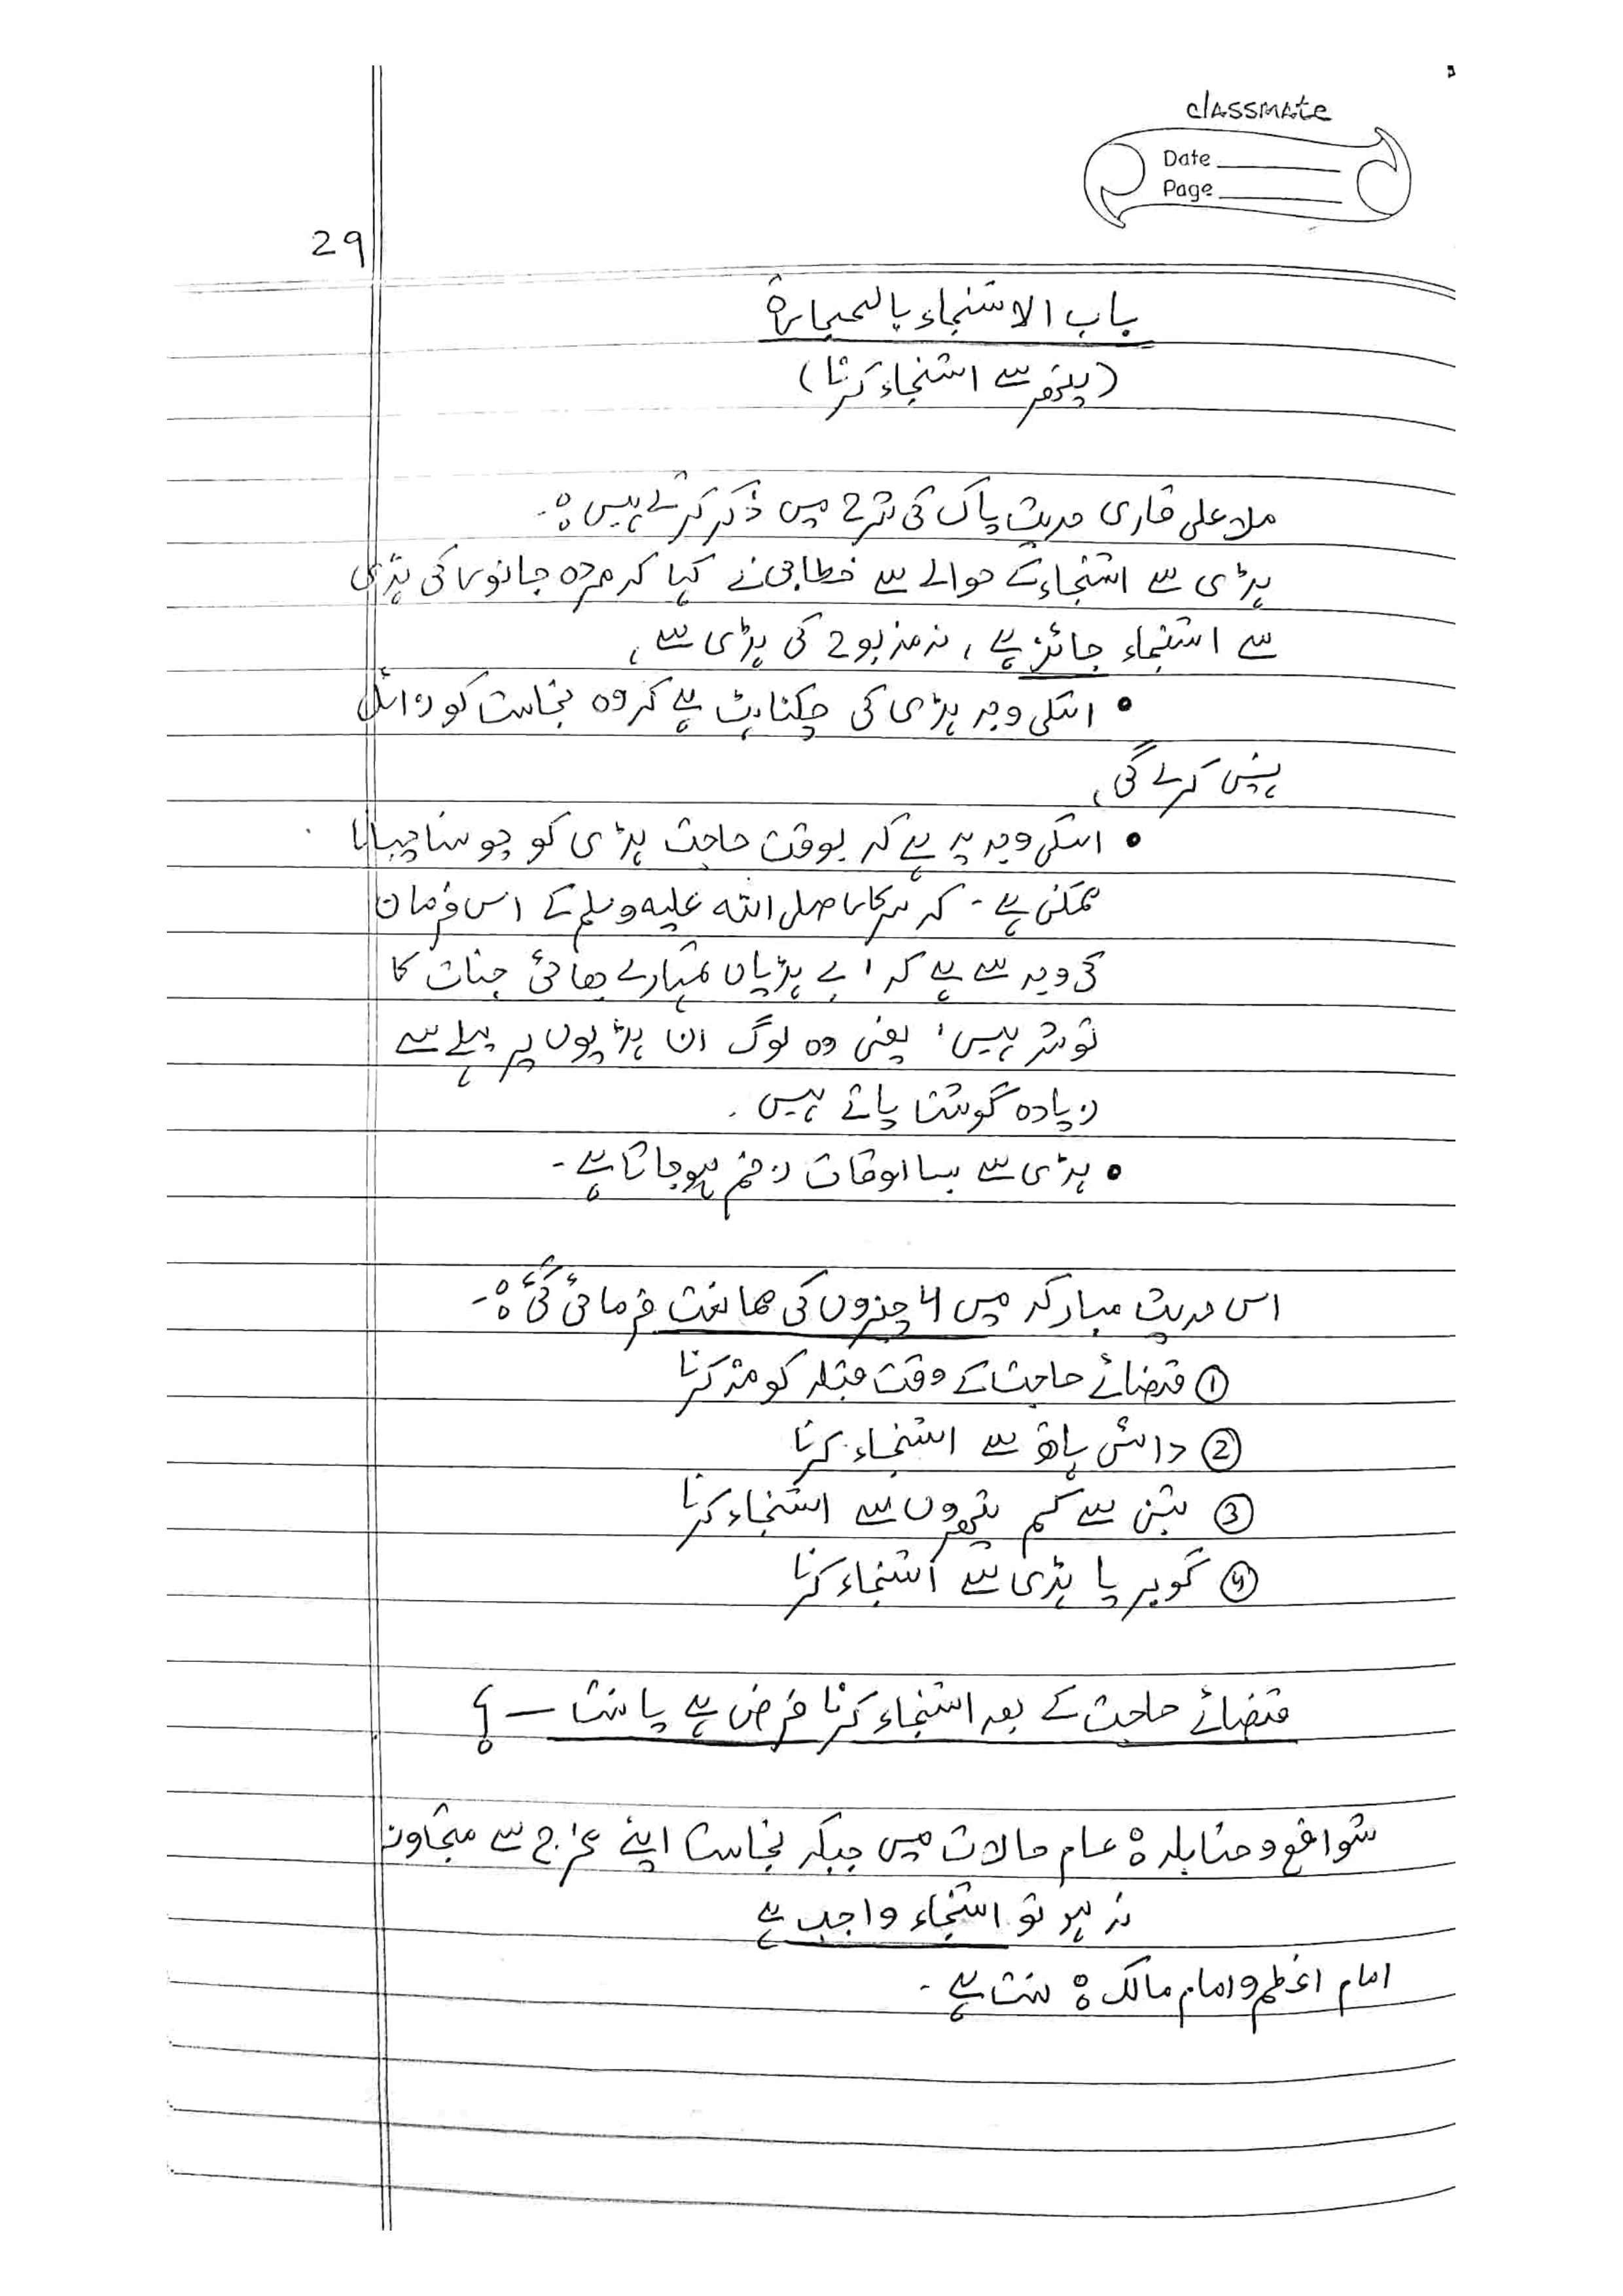 classmate
Date
Page
29
باب الاستنجاء بالحجارة
(پتھر سے استنجاء کرنا)
ملا علی قاری حدیث پاک کی شرح میں ذکر کرتے ہیں :-
ہڈی سے استنجاء کے حوالے سے خطابی نے کہا کہ مردہ جانور کی ہڈی
سے استنجاء جائز ہے، نہ مذبوح کی ہڈی سے،
• اسکی وجہ ہڈی کی چکناہٹ ہے کہ وہ نجاست کو زائل
نہیں کرے گی،
• اسکی وجہ یہ ہے کہ بوقت حاجت ہڈی کو چوسنا چبانا
ممکن ہے - کہ سرکار صلی اللہ علیہ وسلم کے اس فرمان
کی وجہ سے ہے کہ ' بے ہڈیاں تمہارے بھائی جنات کا
توشہ ہیں' یعنی وہ لوگ ان ہڈیوں پر پہلے سے
زیادہ گوشت پاتے ہیں.
• ہڈی سے بسا اوقات زخم ہو جاتا ہے -
اس حدیث مبارکہ میں 4 چیزوں کی ممانعت فرمائی گئی :-
① قضائے حاجت کے وقت قبلہ کو منہ کرنا
② دائیں ہاتھ سے استنجاء کرنا
③ تین سے کم پتھروں سے استنجاء کرنا
④ گوبر یا ہڈی سے استنجاء کرنا
قضائے حاجت کے بعد استنجاء کرنا فرض ہے یا سنت — ؟
شوافع و حنابلہ : عام حالات میں جبکہ نجاست اپنے مخرج سے متجاوز
نہ ہو تو استنجاء واجب ہے
امام اعظم و امام مالک : سنت ہے -